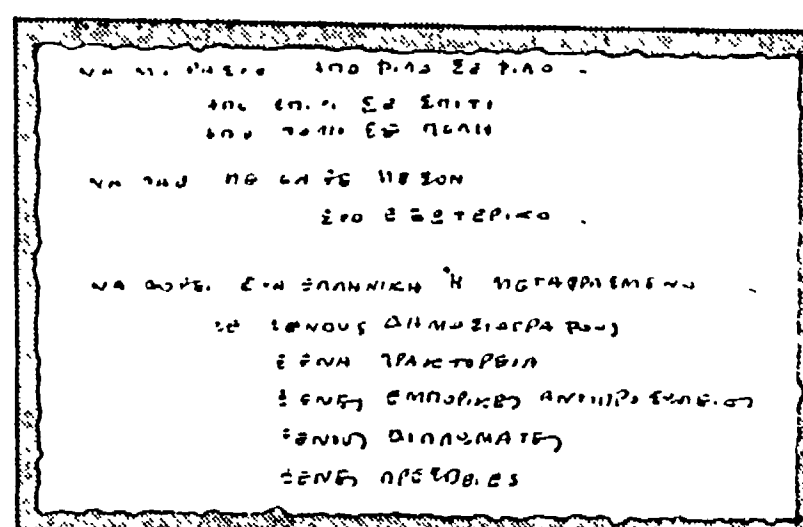 ΝΑ ΜΟΙΡΑΣΕΙ ΑΠΟ ΦΙΛΟ ΣΕ ΦΙΛΟ.
ΑΠΟ ΣΠΙΤΙ ΣΕ ΣΠΙΤΙ
ΑΠΟ ΠΟΛΗ ΣΕ ΠΟΛΗ
ΝΑ ΠΑΕΙ ΜΕ ΚΑΘΕ ΜΕΣΟΝ
ΣΤΟ ΕΞΩΤΕΡΙΚΟ.
ΝΑ ΔΟΘΕΙ ΣΤΗΝ ΕΛΛΗΝΙΚΗ Ή ΜΕΤΑΦΡΑΣΜΕΝΟ
ΣΕ ΞΕΝΟΥΣ ΔΗΜΟΣΙΟΓΡΑΦΟΥΣ
ΞΕΝΑ ΠΡΑΚΤΟΡΕΙΑ
ΞΕΝΕΣ ΕΜΠΟΡΙΚΕΣ ΑΝΤΙΠΡΟΣΩΠΕΙΕΣ
ΞΕΝΟΥΣ ΔΙΠΛΩΜΑΤΕΣ
ΞΕΝΕΣ ΠΡΕΣΒΕΙΕΣ